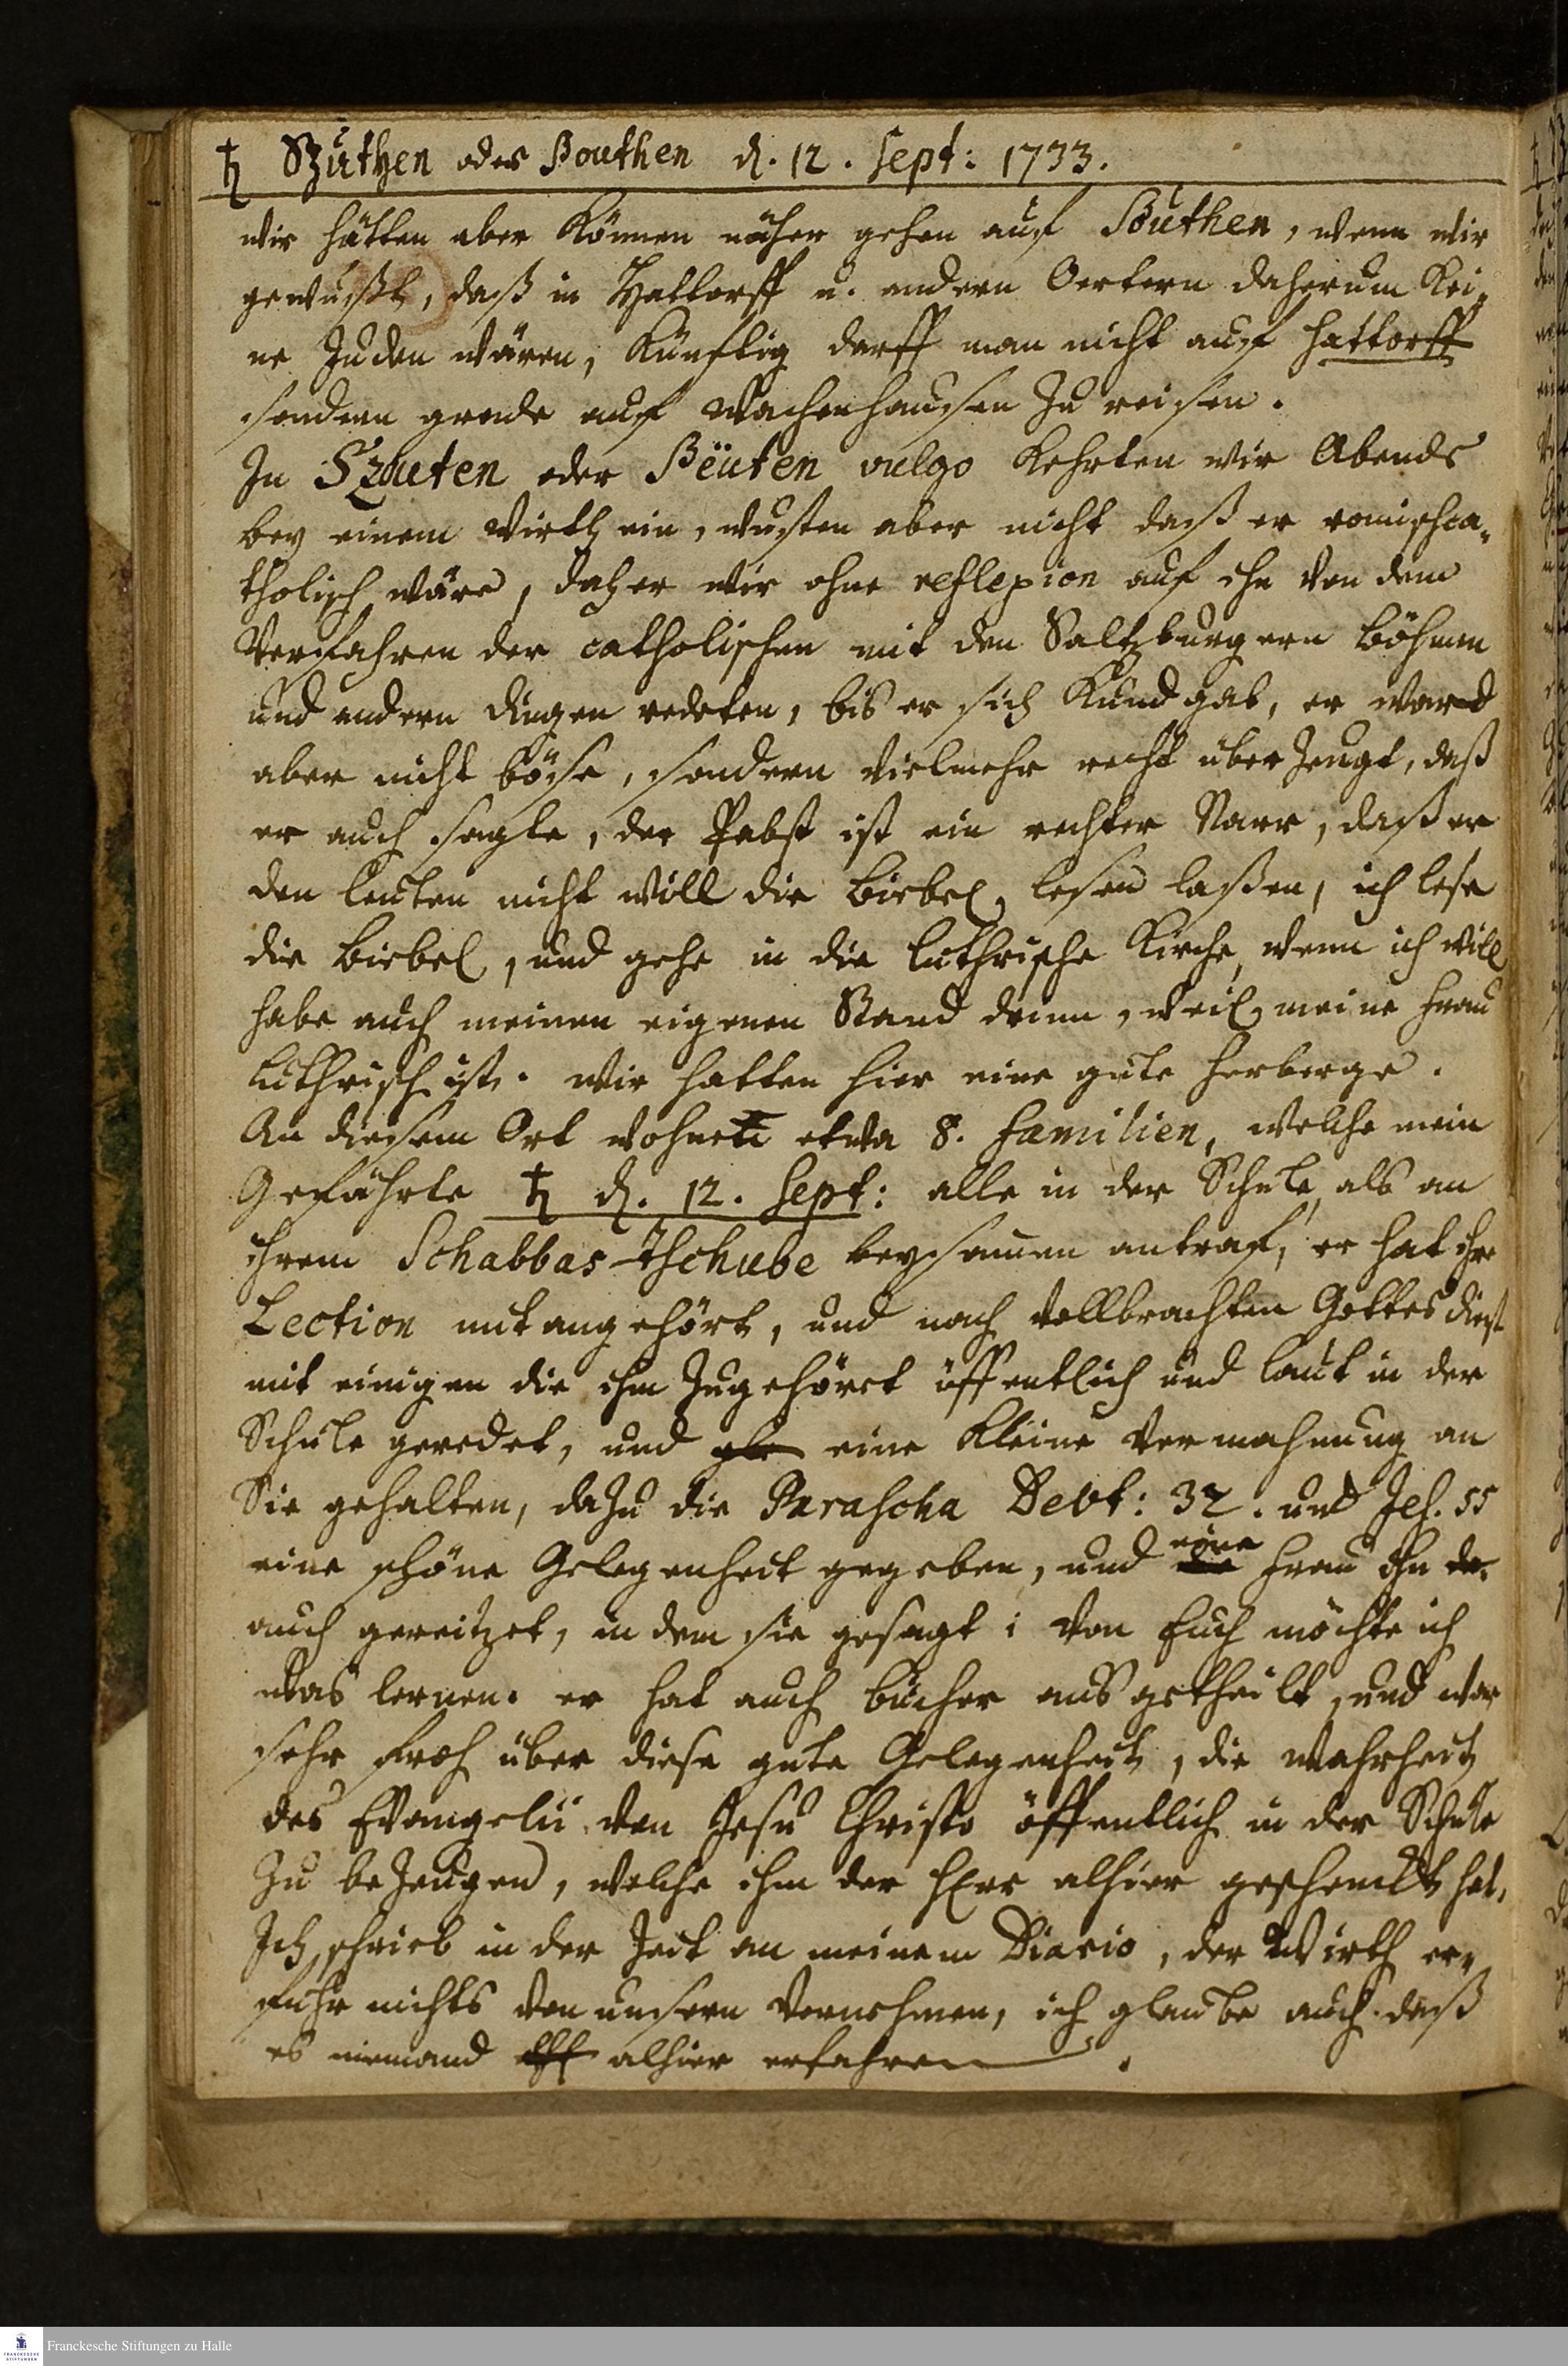 ♄ Szúthen oder Bouthen d. 12. Sept: 1733.
wir hätten aber können näher gehen auf Bouthen, wenn wir
gewußt, daß in Hattorff u. andern Oertern daherum kei-
ne Juden wären, künftig darff man nicht auf Hattorff
sondern grade auf Wachenhausen zu reisen.
In Szauten oder Bëuten vulgo kehrten wir Abends
bey einem Wirth ein, wusten aber nicht daß er romischca-
tholisch wäre, daher wir ohne reflexion auf ihn von dem
Verfahren der catholischen mit den Saltzburgern Böhmen
und andern dingen redeten, bis er sich kund gab, er ward
aber nicht böse, sondern vielmehr recht überzeugt, daß
er auch sagte, der Pabst ist ein rechter Narr, daß er
den leuten nicht will die Biebel lesen laßen, ich lese
die Biebel, und gehe in die luthrische Kirche, wenn ich will
habe auch meinen eigenen Stand drinn, weil meine Frau
luthrisch ist. wir hatten hier eine gute Herberge.
An diesem Ort wohnen etwa 8. Familien, welche mein
Gefährte ♄ d. 12. Sept: alle in der Schule, als an
ihrem Schabbas-Tschube beysammen antraf, er hat ihre
Lection mit angehört, und nach vollbrachten Gottesdinst
mit einigen die ihm zugehöret öffentlich und laut in der
Schule geredet, und eine kleine Vermahnung an
Sie gehalten, dazu die Parascha Devt: 32. und Jes. 55
eine schöne Gelegenheit gegeben, und eine Frau ihn
auch gereitzet, in dem sie gesagt: von Euch möchte ich
was lernen. er hat auch bücher ausgetheilt, und war
sehr froh über diese gute Gelegenheit, die Wahrheit
des Evangelii von Jesu Christo öffentlich in der Schule
zu bezeugen, welche ihm der HErr alhier geschenckt hat.
Ich schrieb in der Zeit an meinem Diario, der Wirth er-
fuhr nichts von unsern Vornehmen, ich glaube auch daß
es niemand alhier erfahren.
Franckesche Stiftungen zu Halle
FRANCKESCHE
STIFTUNGEN